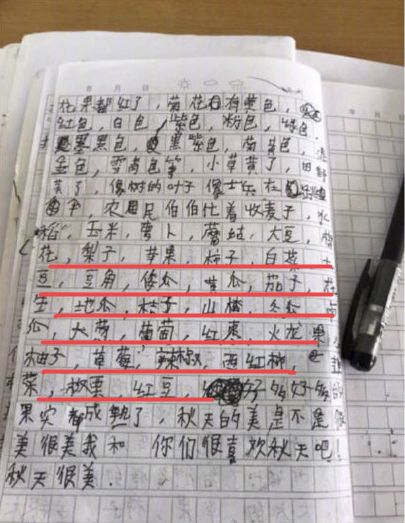 花果都红了，菊花有黄色，
红色，白色，紫色，粉色，绿色，
黑色，黑紫色，南黄色，
金色，雪青色等，小草黄了，田野
黄了，像树的叶子像士乐在
中，农民伯伯忙着收麦子，水
稻，玉米，萝卜，蘑菇，大豆，棉
花，梨子，苹果，柿子，白菜，土
豆，豆角，倭瓜，黄瓜，茄子，花
生，地瓜，桔子，山楂，冬瓜，西
瓜，大葱，葡萄，红枣，火龙果
柚子，草莓，辣椒，西红柿，
菜，板栗，红豆，好多好多的
果实都成熟了，秋天的美是不是很
美很美我和 你们很喜欢秋天吧！
秋天很美．